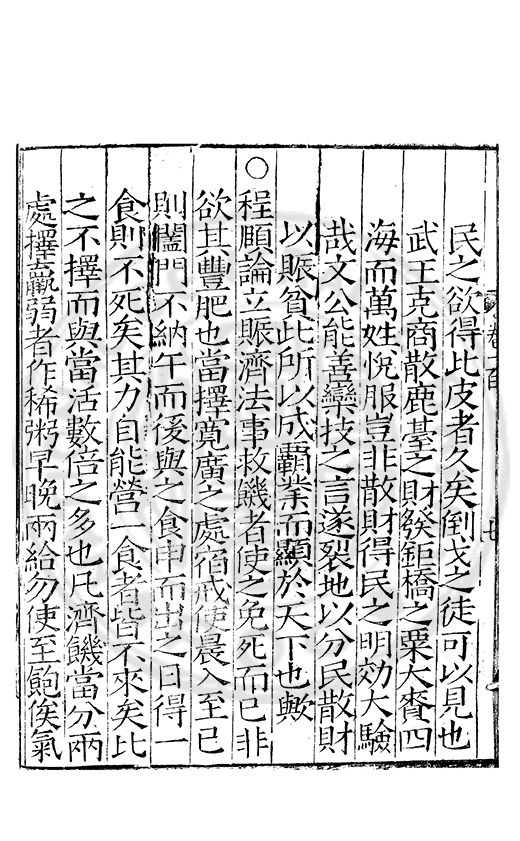 民之欲得此皮者久矣倒戈之徒可以見也
武王克商散鹿䑓之財發鉅橋之粟大賚四
海而萬姓悅服豈非散財得民之明効大驗
哉文公能善欒技之言遂裂地以分民散財
以賑貧此所以成霸業而顯於天下也歟
○
程頤論立賑濟法事救饑者使之免死而已非
欲其豐肥也當擇寬廣之處宿戒使晨入至巳
則闔門不納午而後與之食申而出之日得一
食則不死矣其力自能營一食者皆不來矣比
之不擇而與當活數倍之多也凡濟饑當分兩
處擇羸弱者作稀粥早晚兩給勿使至飽俟氣
卷一百